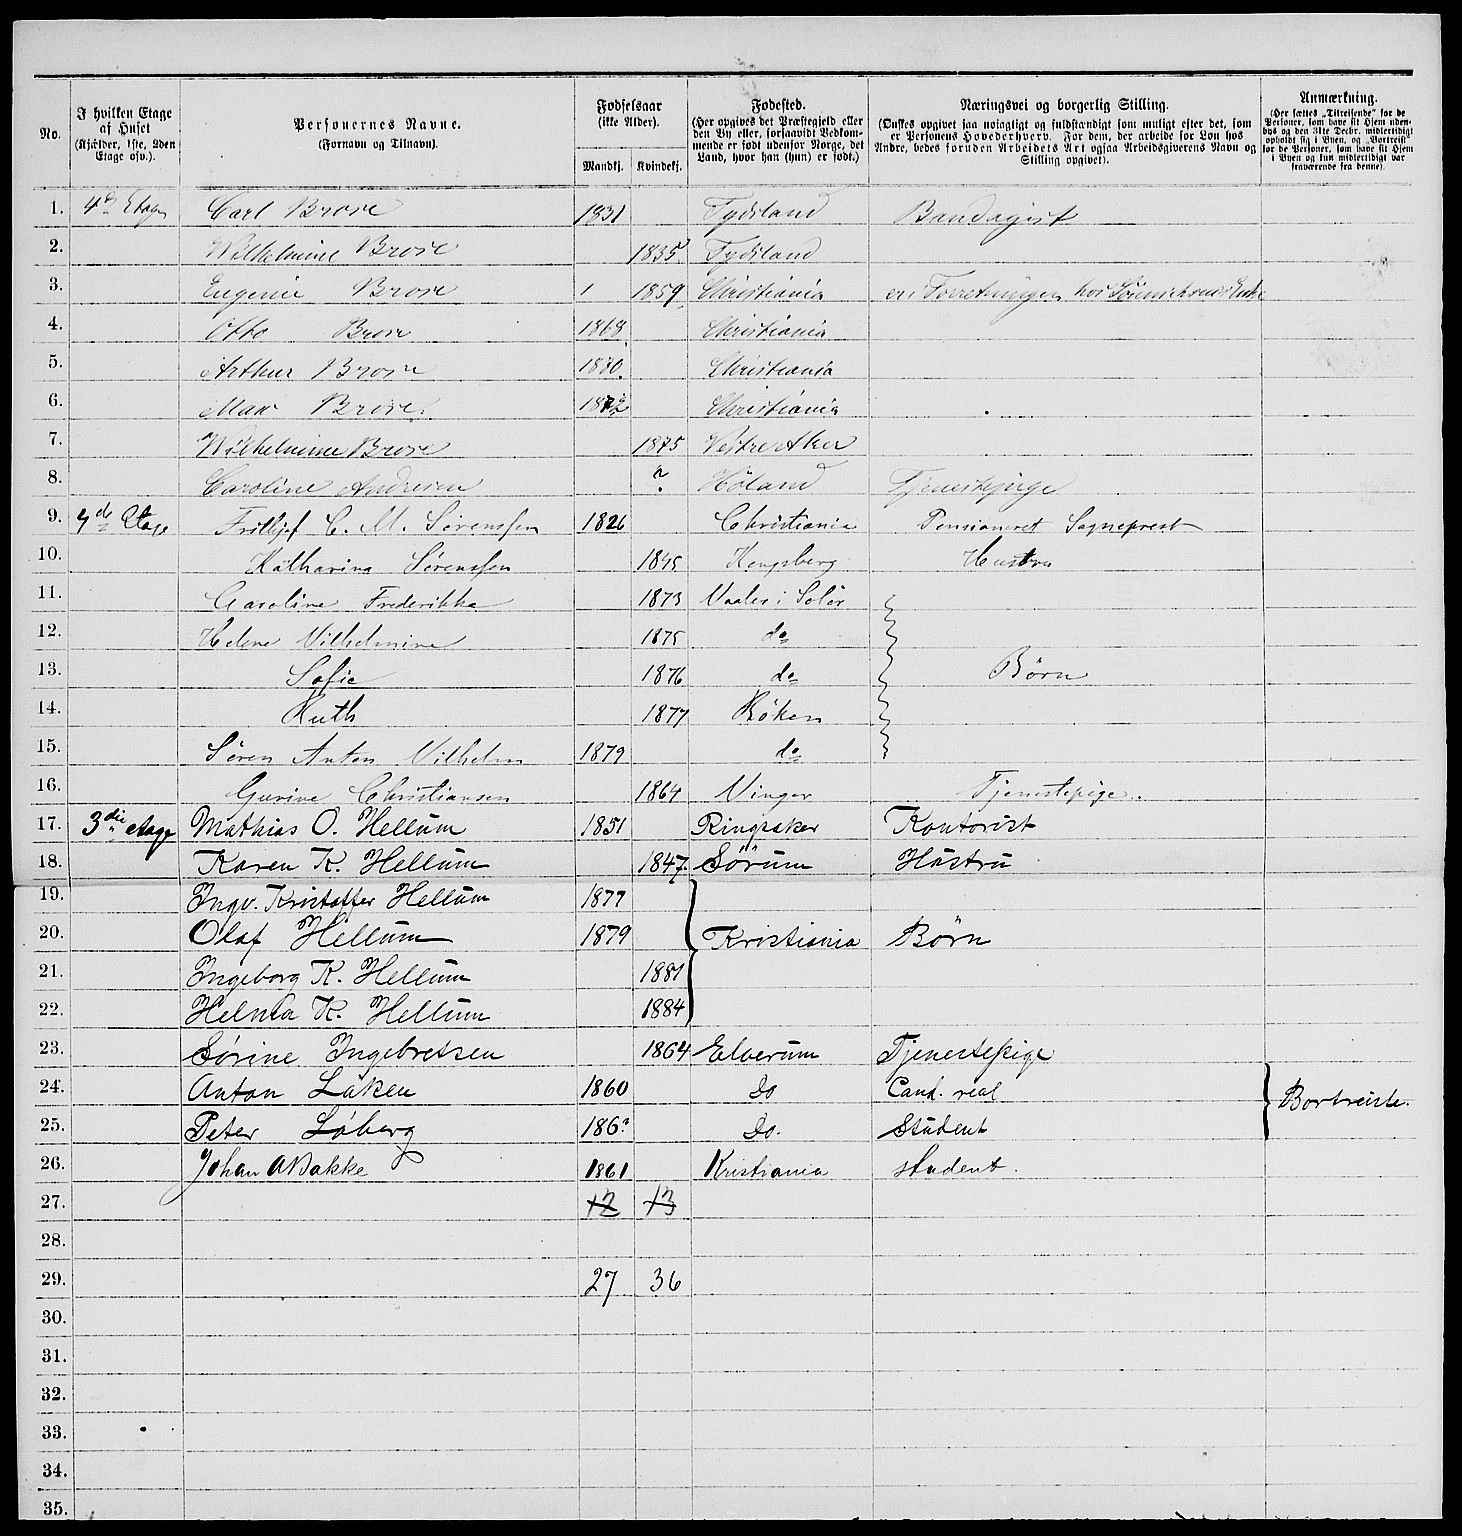 No.
I hvilken Etage af Huset (Kjælder, 1ste, 2den Etage osv.).
Personernes Navne. (Fornavn og Tilnavn).
Fødselsaar (ikke Alder). Mandkj. Kvindekj.
Fødested. (Her opgives det Præstegjeld eller den By eller, forsaavidt Vedkommende er født udenfor Norge, det Land, hvor han (hun) er født.)
Næringsvei og borgerlig Stilling. (Ønskes opgivet saa nøiagtigt og fuldstændigt som muligt efter det, som er Personens Hovederhverv. For dem, der arbeide for Løn hos Andre, bedes foruden Arbeidets Art ogsaa Arbeidsgiverens Navn og Stilling opgivet).
Anmærkning. (Her sættes „Tilreisende“ for de Personer, som have sit Hjem udenbys og den 31te Decbr. midlertidigt opholdt sig i Byen, og „Bortreist“ for de Personer, som have sit Hjem i Byen og kun midlertidigt var fraværende fra denne).
1. 4de Etage Carl Brose 1831 Tydsland Bandagist
2. Wilhelmine Brose 1835 Tydsland
3. Eugenie Brose 1859 Christiania er i Forretningen hos Enke
4. Otto Brose 1868 Christiania
5. Arthur Brose 1870. Christiania
6. Max Brose. 1872 Christiania
7. Wilhelmine Brose 1875 Vestre Aker
8. Caroline Andresen ? Høland Tjenestepige
9. 4de Etage Frithjof C. M. Sørenssen 1826 Christiania Pensioneret Sogneprest
10. Katharina Sørenssen 1845 Kongsberg Hustru
11. Caroline Frederikke 1873 Vaaler i Solør
12. Helene Vilhelmine 1875 do
13. Sofie 1876 do Børn
14. Ruth 1877 Røken
15. Søren Anton Vilhelm 1879 do
16. Gurine Christiansen 1864 Vinger Tjenestepige.
17. 3die etage Mathias O. Hellum 1851 Ringsaker Kontorist
18. Karen K. Hellum 1847 Sørum Hustru
19. Ingv. Kristoffer Hellum 1877
20. Olaf Hellum 1879 Kristiania Børn
21. Ingeborg K. Hellum 1881
22. Helma K. Hellum 1884
23. Sørine Ingebretsen 1864 Elverum Tjenestepige
24. Anton Løken 1860 Do Cand. real Bortreiste.
25. Peter Løberg 186? Do. Student
26. Johan A Bakke 1861 Kristiania student.
27. 12 13
28.
29. 27 36
30.
31.
32.
33.
34.
35.